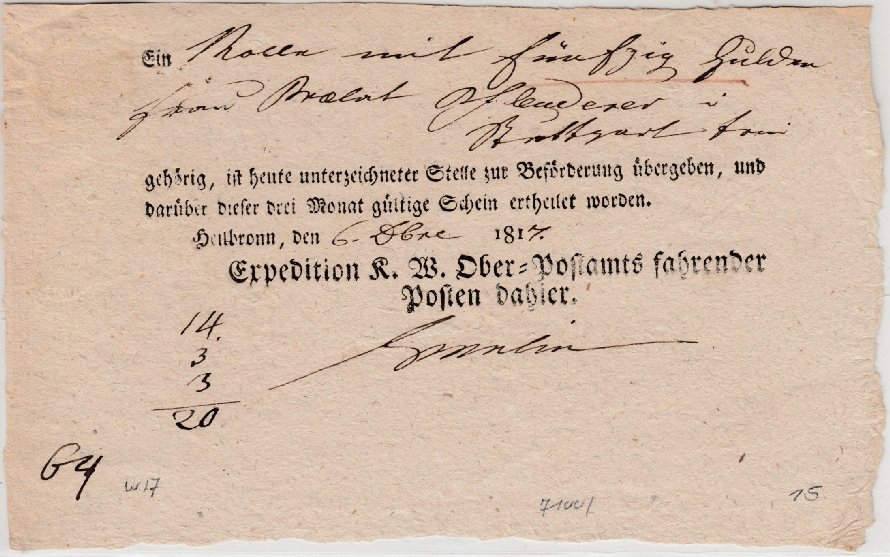 Ein Rolle mit fünfzig Gulden
Frau Prælat Pfleiderer i
Stuttgart frei
gehörig, ist heute unterzeichneter Stelle zur Beförderung übergeben, und
darüber dieser drei Monat gültige Schein ertheilet worden.
Heilbronn, den 6. Dbre 1817.
Expedition K. W. Ober-Postamts fahrender
Posten dahier.
14.
3
3
20
64
W17
7100/
15